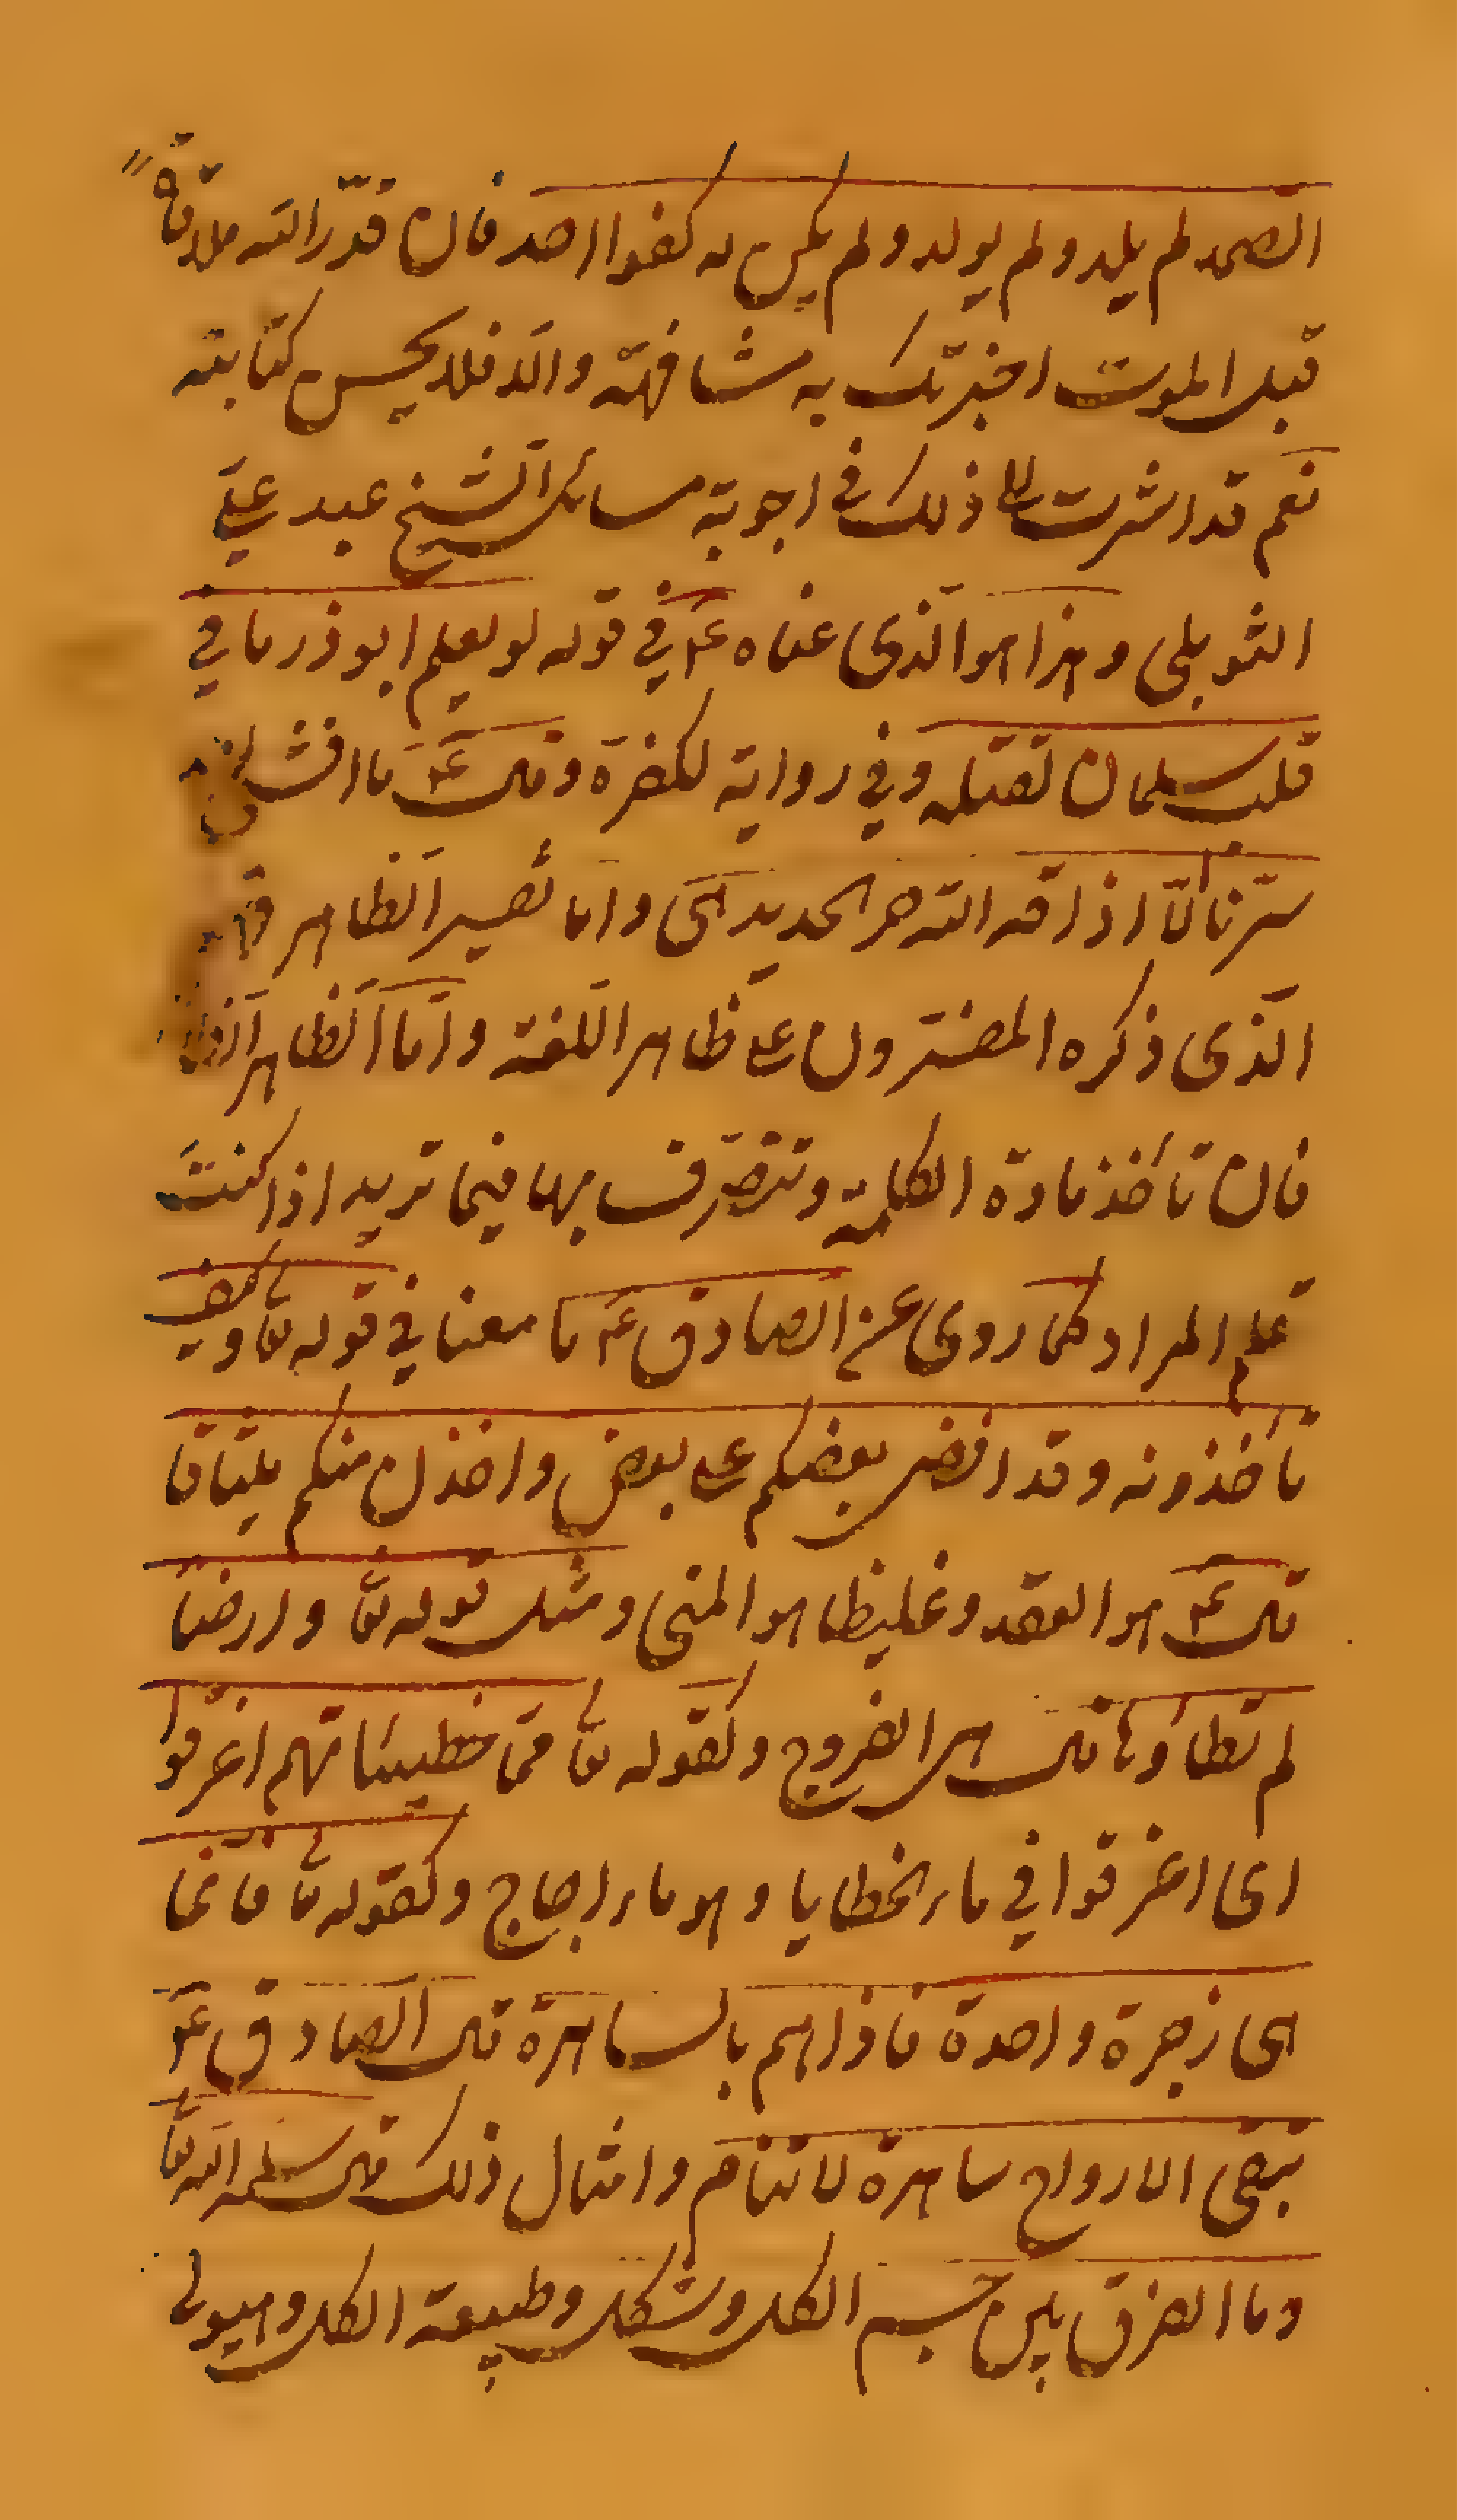 الصمد لم يلد ولم يولد ولم يكن له كفوا احد فان قدّر الله ملاقاة
قبل الموت اخبرتك به مشافهة والّا فلا يحسن كتابته
نعم قد اشرت الى ذلك في اجوبة مسائل الشيخ عبد علي
التوبلي وهذا هو الّذي عناه ع۴ في قوله لو يعلم ابوذر ما في
قلب سلمان لقتله وفي رواية لكفّره وقال ع۴ ما افشا
سرّنا الّا اذاقه الله حر الحديد الخ واما تفسير الظاهر فهو
الّذي ذكره المفسّرون على ظاهر اللغة وامّا الظاهر
فان تأخذ مادة الكلمة وتتصرّف بها فيما تريد اذا كنت
تعلم المراد كما روى عن الصادق ع۴ ما معنا في قوله تعا وكيف
تأخذونه وقد افضى بعضكم على بعض واخذن منكم ميثاقا
قال ع۴ هو العقد وغليظا هو المني ومثل قوله تعا وارضا
لم تطاؤها قال هي الفروج وكقوله تعا ممّا خطيئاتهم اغرقوا
اى اغرقوا في ماء الخطايا وهو ماء اجاج وكقوله تعا فانما
هى زجرة واحدة فاذا هم بالساهرة قال الصادق ع۴
تبقى الارواح ساهرة لا تنام وامثال ذلك قال سلمه الله تعا
وما الفرق بين جسم الكل وشكل وطبيعة الكل وهيولى